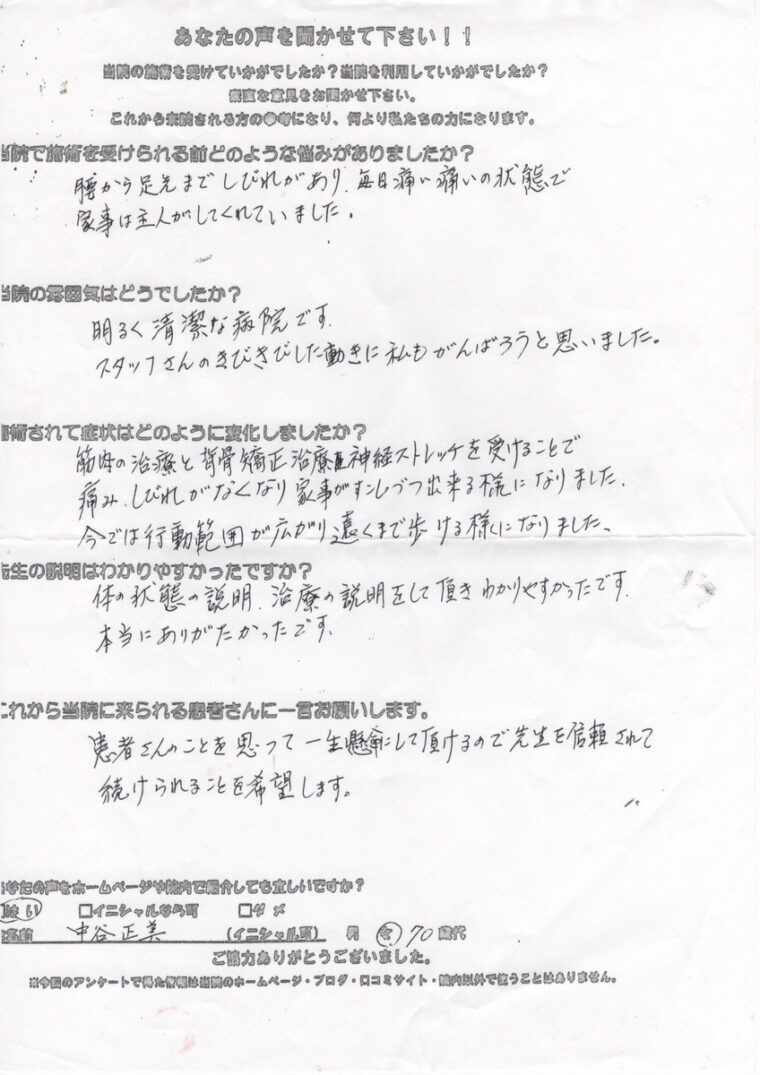 あなたの声を聞かせて下さい！！
当院の施術を受けていかがでしたか？当院を利用していかがでしたか？
率直な意見をお聞かせ下さい。
これから来院される方の参考になり、何より私たちの力になります。
当院で施術を受けられる前どのような悩みがありましたか？
腰から足先までしびれがあり、毎日痛い痛いの状態で
家事は主人がしてくれていました。
当院の雰囲気はどうでしたか？
明るく清潔な病院です.
スタッフさんのきびきびした動きに私もがんばろうと思いました。
施術されて症状はどのように変化しましたか？
筋肉の治療と背骨矯正治療 神経ストレッチを受けることで
痛み、しびれがなくなり家事がすこしづつ出来る様になりました.
今では行動範囲が広がり遠くまで歩ける様になりました。
先生の説明はわかりやすかったですか？
体の状態の説明、治療の説明をして頂きわかりやすかったです.
本当にありがたかったです.
これから当院に来られる患者さんに一言お願いします。
患者さんのことを思って一生懸命にして頂けるので先生を信頼されて
続けられることを希望します。
あなたの声をホームページや院内で紹介しても宜しいですか？
はい □イニシャルなら可 □ダメ
お名前 中谷正美 （イニシャル可） 男 女 70 歳代
ご協力ありがとうございました。
※今回のアンケートで得た情報は当院のホームページ・ブログ・口コミサイト・院内以外で使うことはありません。